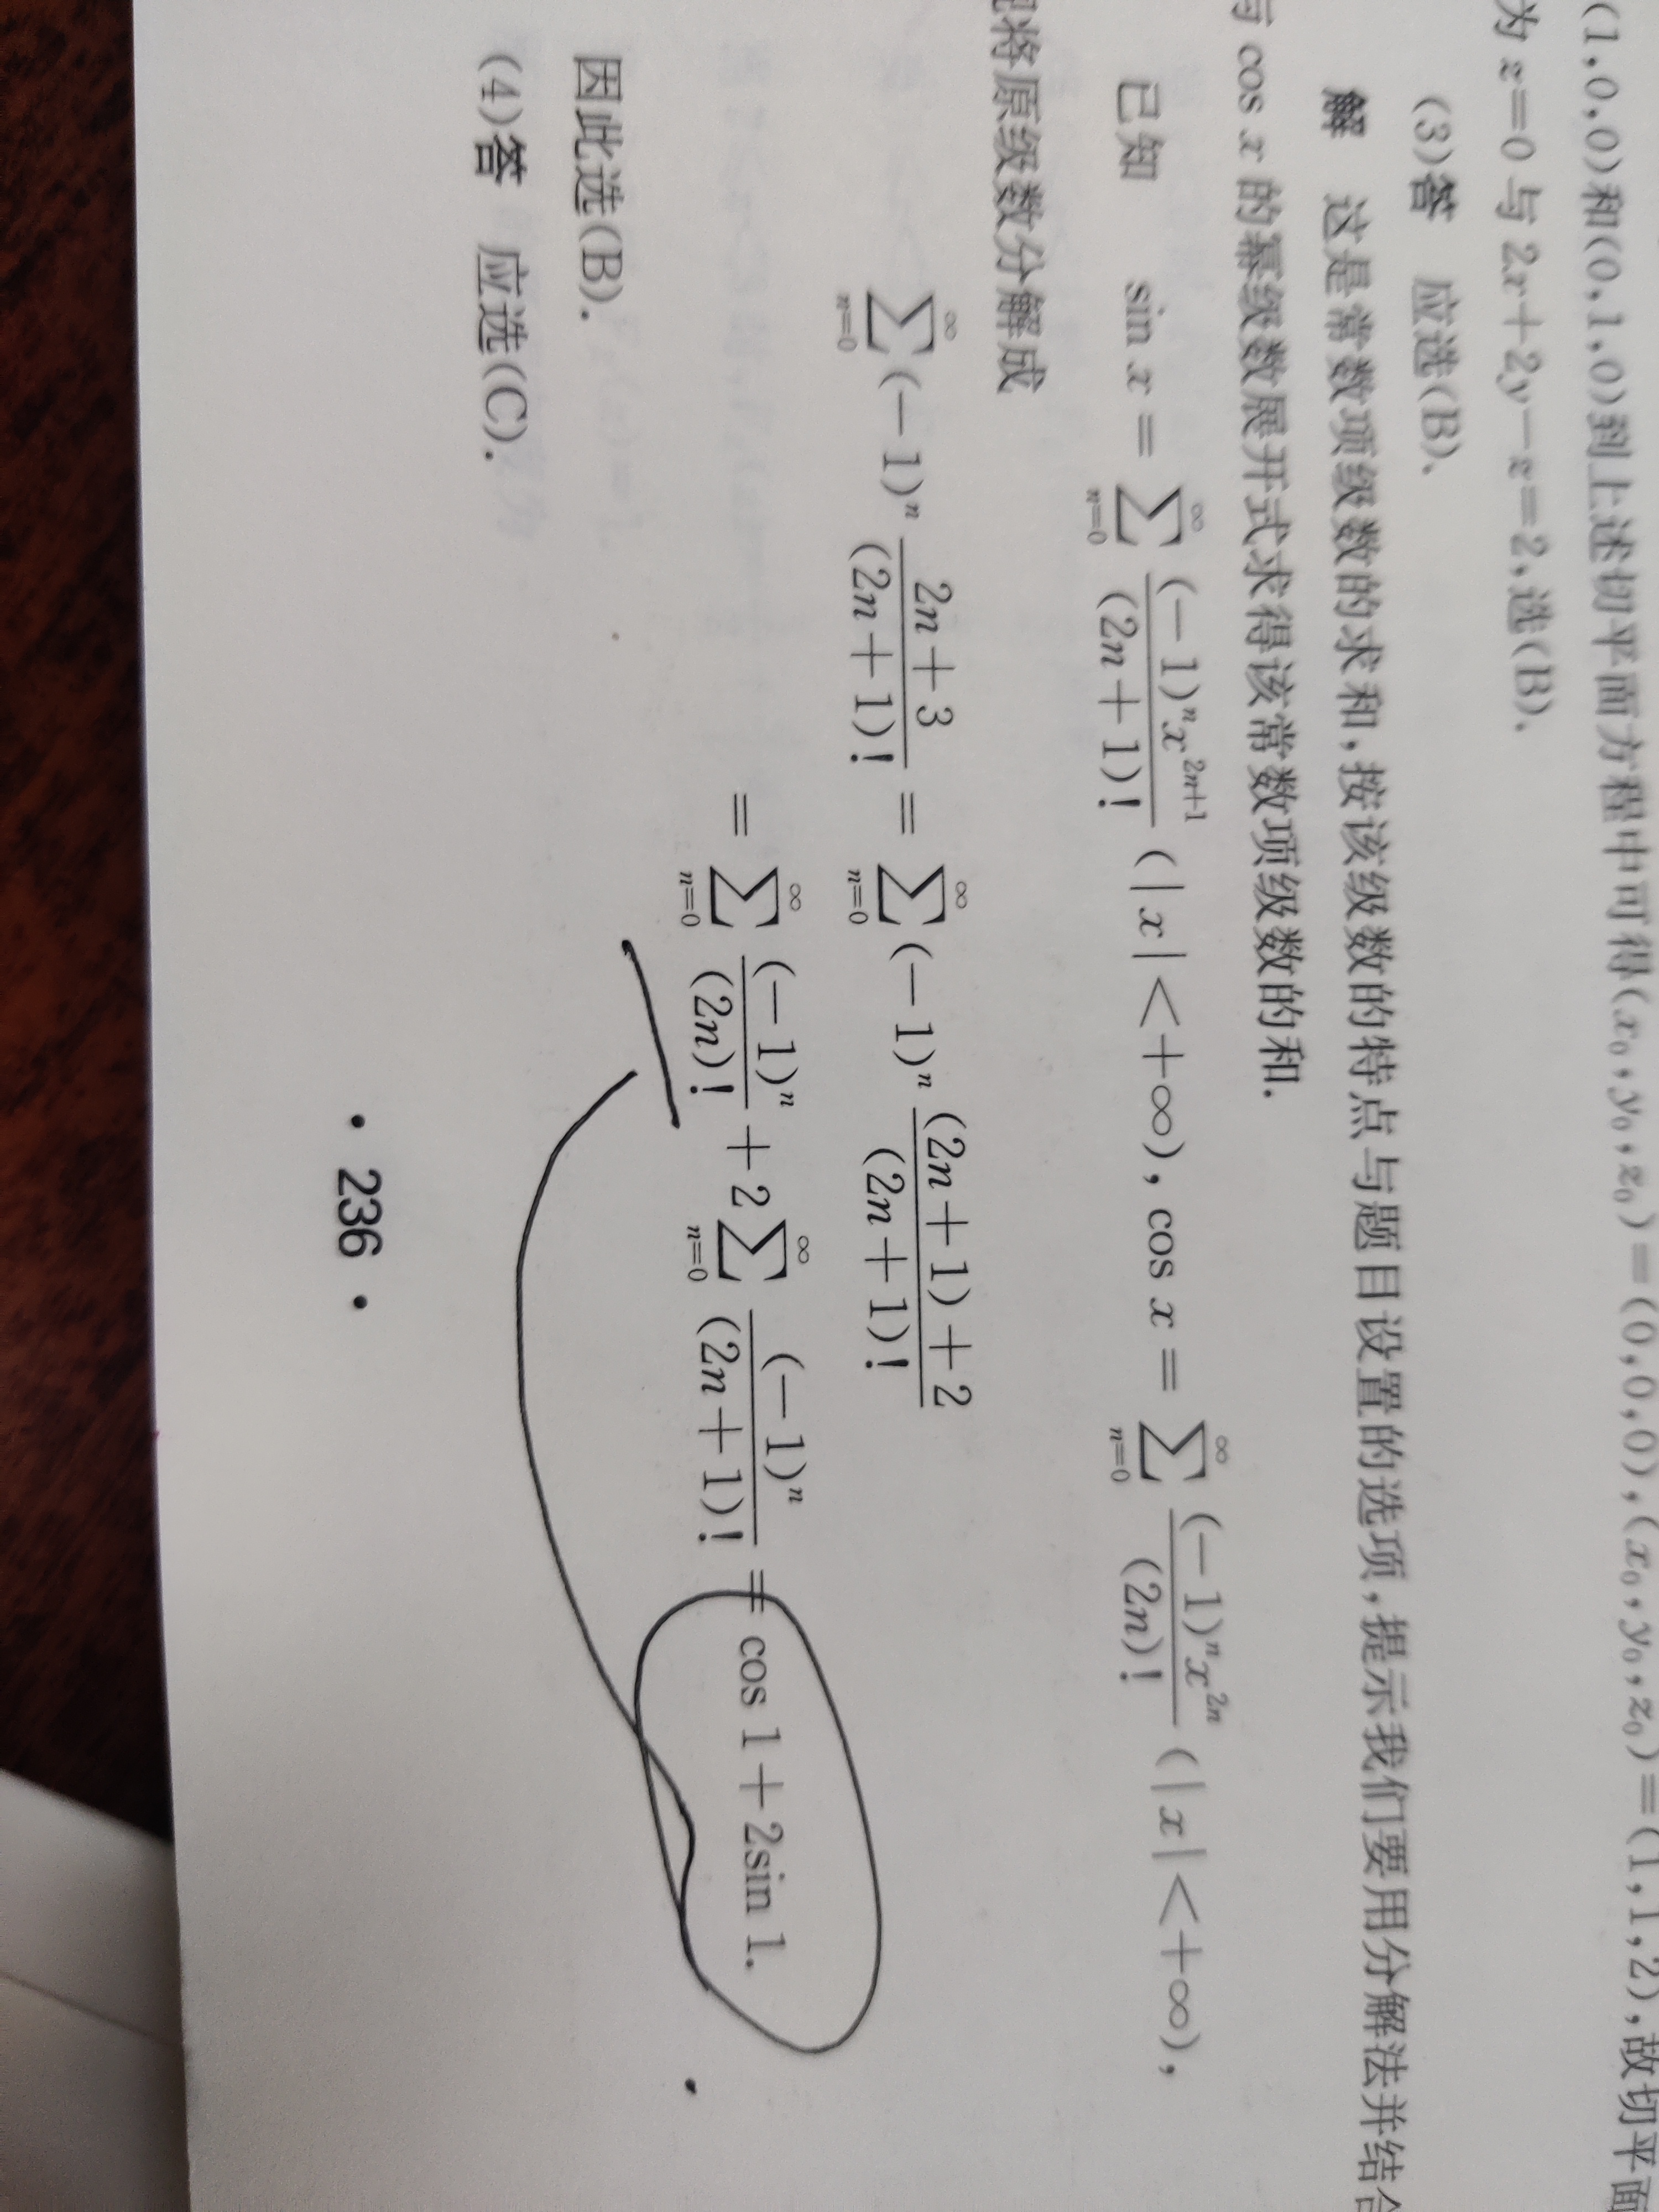 (1,0,0)和(0,1,0)到上述切平面方程中可得(x₀,y₀,z₀)=(0,0,0),(x₀,y₀,z₀)=(1,1,2),故切平面
为 z=0 与 2x+2y-z=2,选(B).
(3)答 应选(B).
解 这是常数项级数的求和,按该级数的特点与题目设置的选项,提示我们要用分解法并结合
与 cos x 的幂级数展开式求得该常数项级数的和.
已知 sin x = ∑_{n=0}^{∞} \frac{(-1)^n x^{2n+1}}{(2n+1)!} (|x|<+∞), cos x = ∑_{n=0}^{∞} \frac{(-1)^n x^{2n}}{(2n)!} (|x|<+∞),
将原级数分解成
∑_{n=0}^{∞} (-1)^n \frac{2n+3}{(2n+1)!} = ∑_{n=0}^{∞} (-1)^n \frac{(2n+1)+2}{(2n+1)!}
= ∑_{n=0}^{∞} \frac{(-1)^n}{(2n)!} + 2∑_{n=0}^{∞} \frac{(-1)^n}{(2n+1)!} = cos 1+2sin 1.
因此选(B).
(4)答 应选(C).
· 236 ·